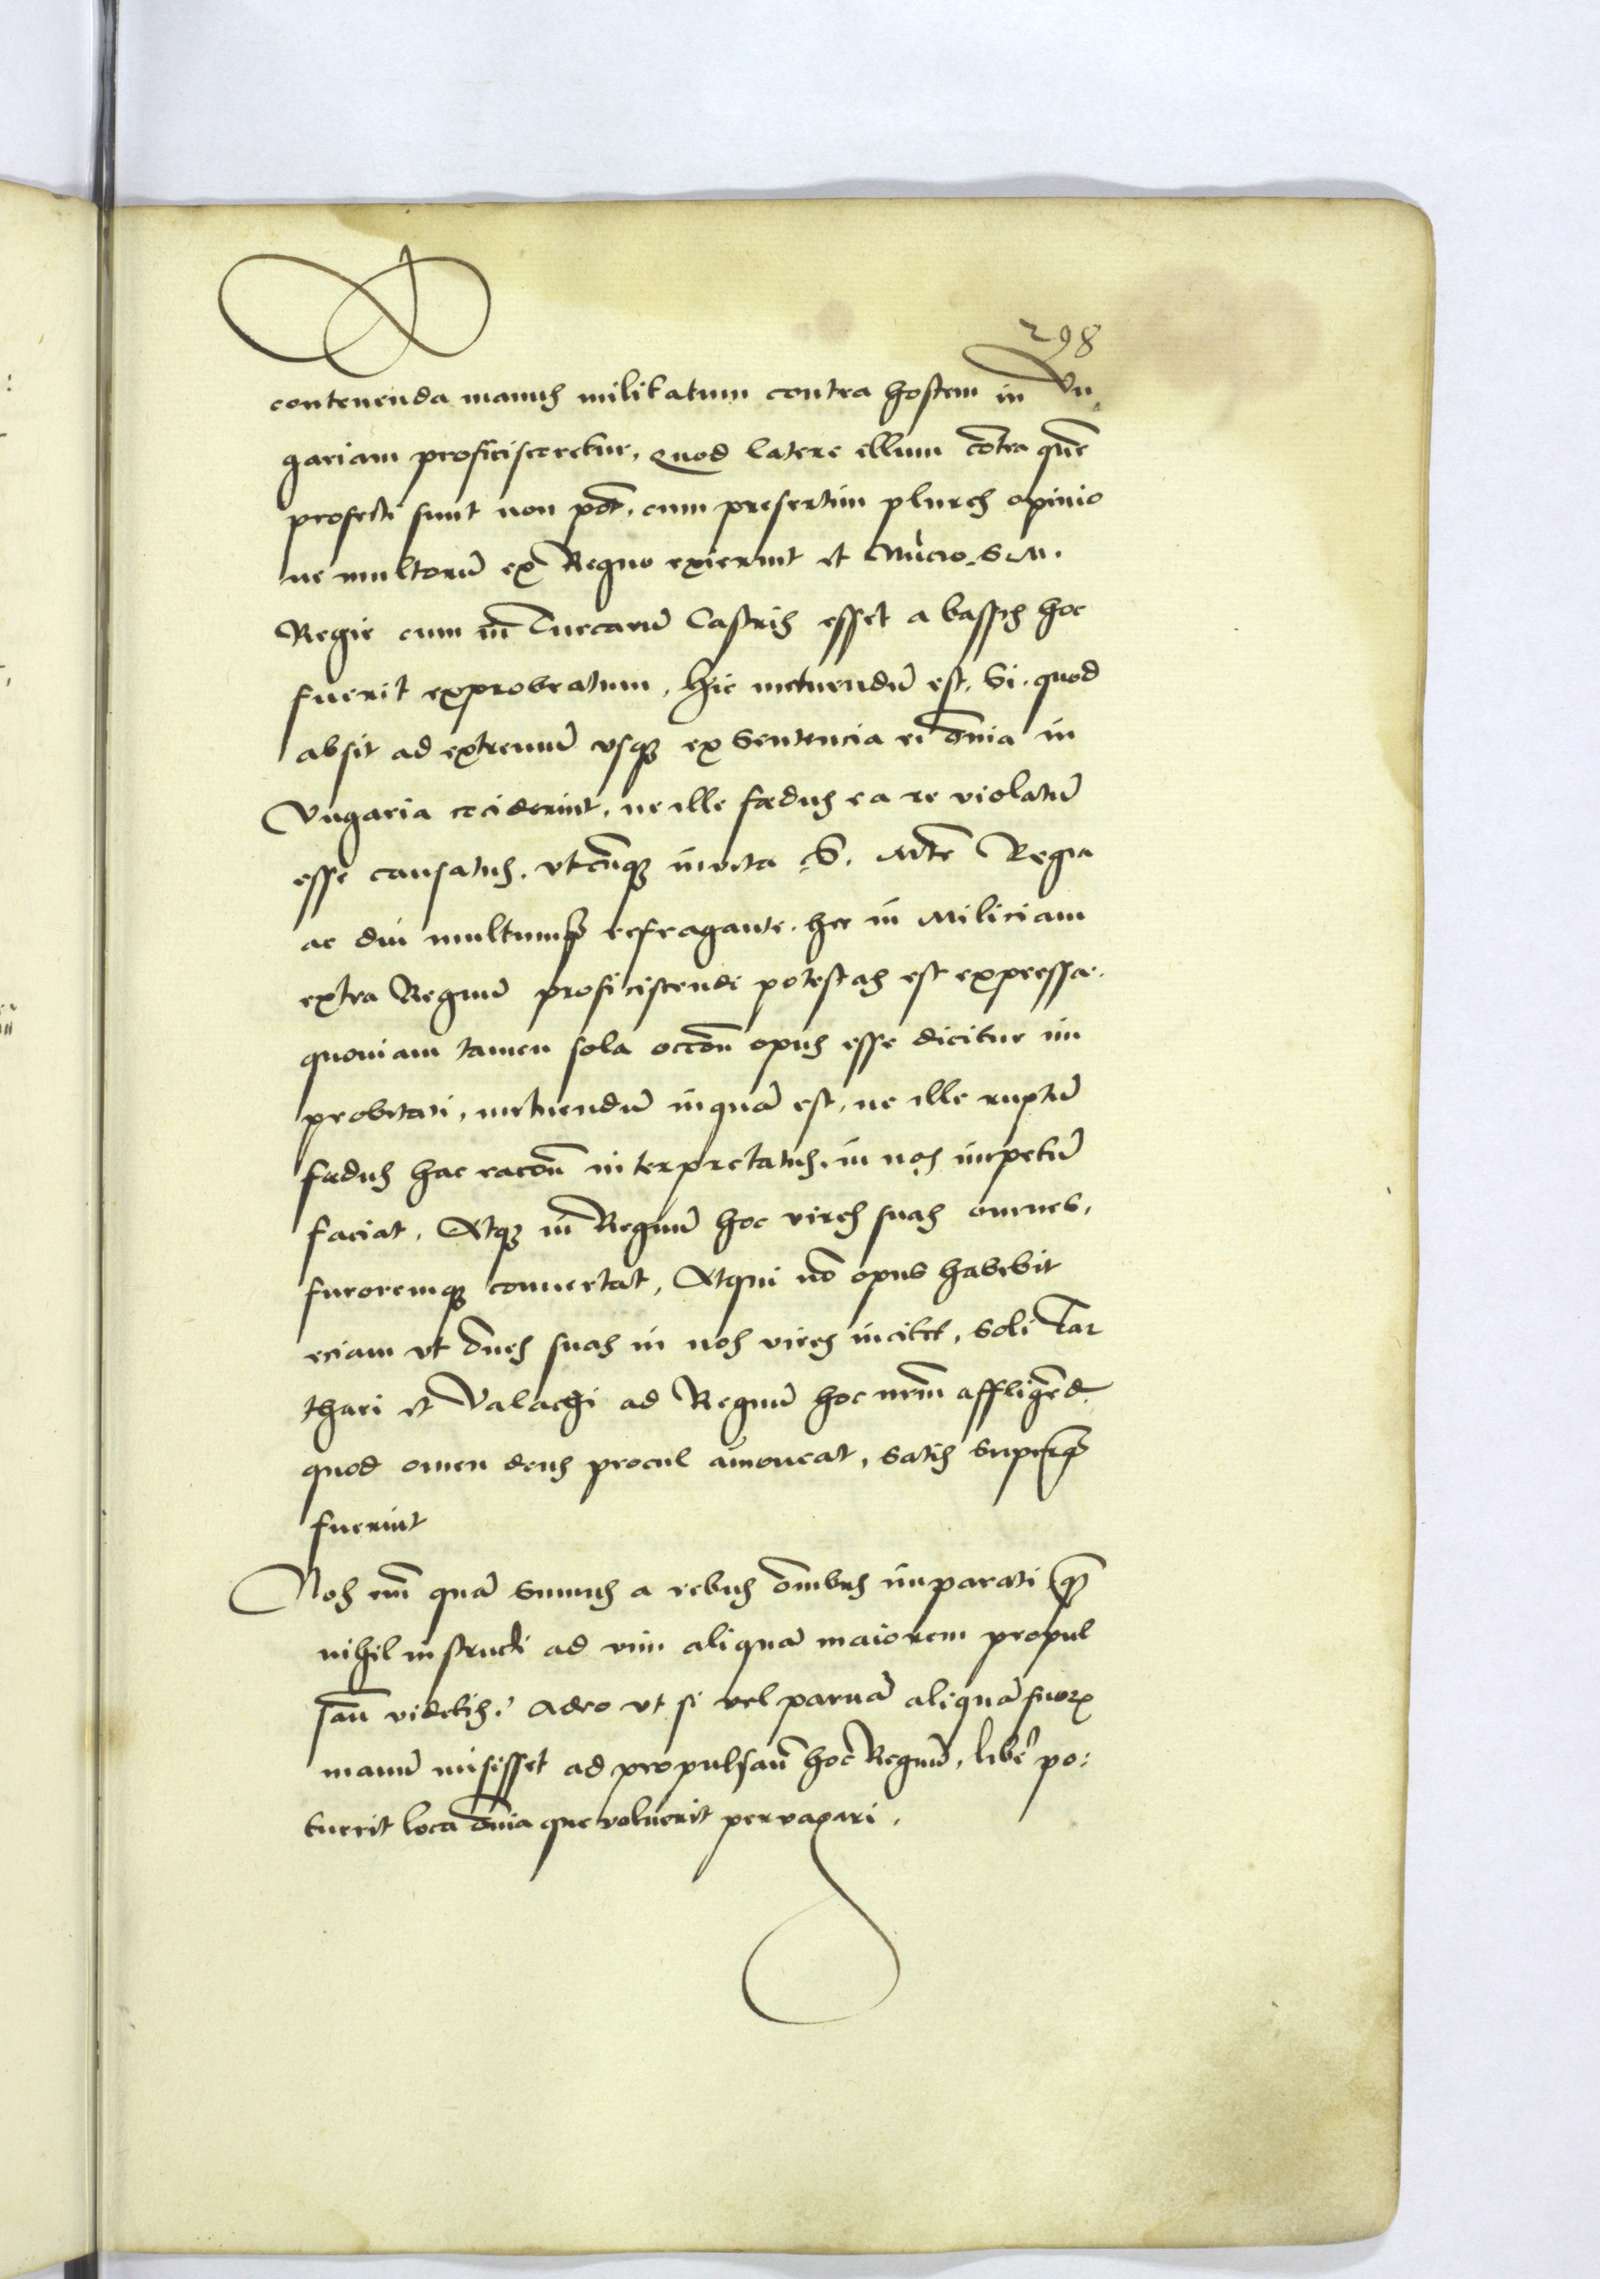 298
contenenda manus militatum contra hostem in Vn
gariam proficisceretur, quod latere illum cōtra quē
profecti sunt non pōt, cum presertim plures opinio
ne multorū ex Regno exierint et Nūcio S. M.
Regie cum in Turcarū Castris esset a bassis hoc
fuerit exprobratum, hic metuendū est, Si quod
absit ad extremū vsq̨ ex Sententia ei om̄ia in
Vngaria ceciderint, ne ille fœdus ea re violatū
esse causatus, vtcūq̨ inuita S. Mte Regia
ac diu multumq̨ refragante, hec in Miliciam
extra Regnū proficiscendi potestas est expressa.
quoniam tamen sola occōn opus esse dicitur im
probitati, metuendū inquā est, ne ille ruptū
fœdus hac racōn interpretatus, in nos impetū
faciat, Atq̨ in Regnū hoc vires suas omnes,
furoremq̨ conuertat, Atqui nō opus habebit
eciam vt ōnes suas in nos vires incitet, Soli Tar
thari et Valachi ad Regnū hoc nrm̄ affligēd.
quod omen deus procul amoueat, satis superq̨
fuerint
Nos em̄ quā sumus a rebus ōmibus imparati q̄
nihil instructi ad vim aliquā maiorem propul
sañ videtis? Adeo vt si vel paruā aliquā suorꝝ
manū misisset ad propulsañ hoc Regnū, libē po:
tuerit loca ōmia que voluerit peruagari.